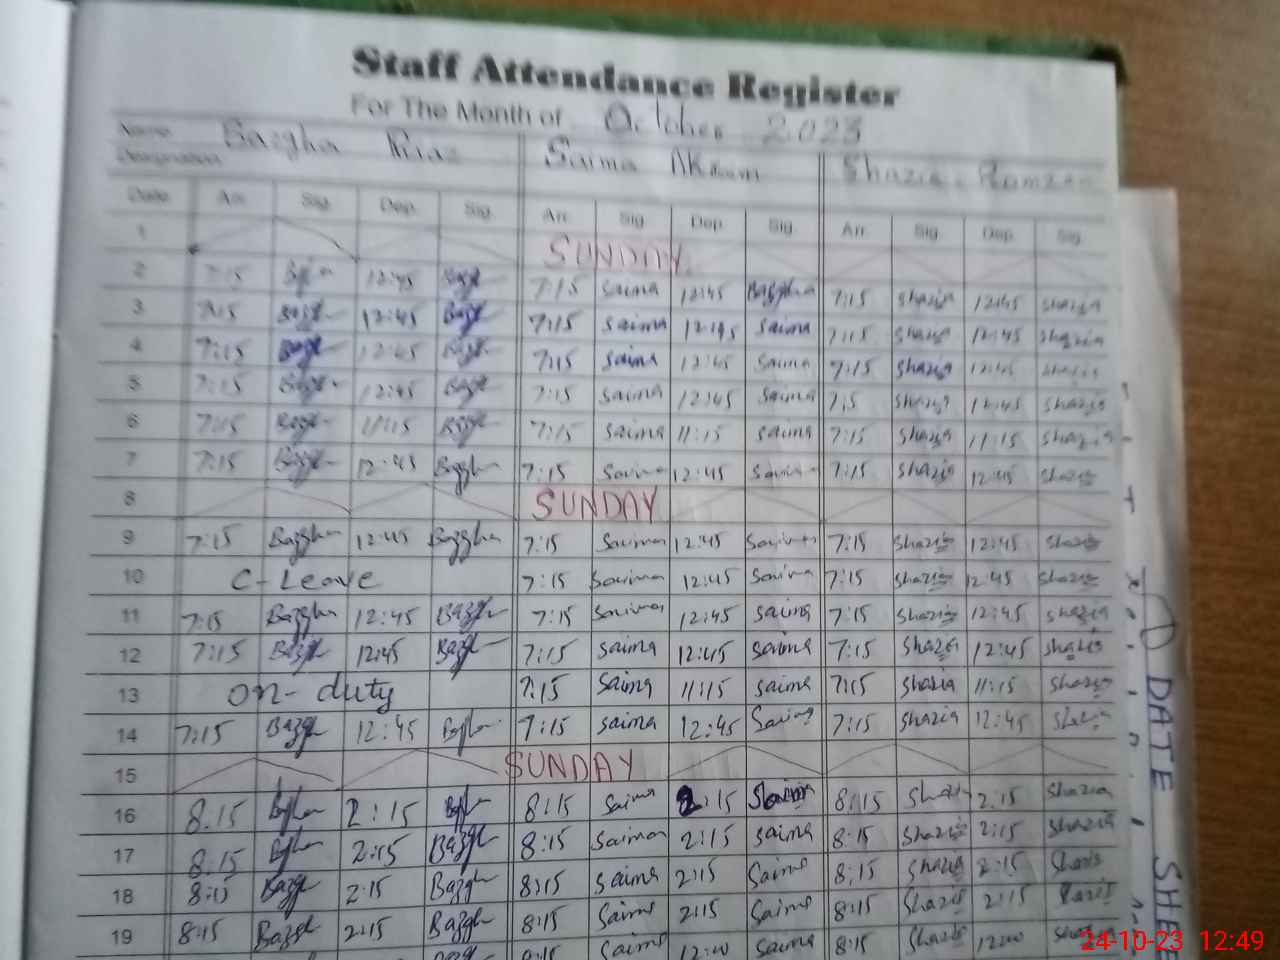 Staff Attendance Register
For The Month of October 2023
Name Bazgha Riaz Saima Akram Shazia Ramzan
Designation
Date Arr. Sig. Dep. Sig. Arr. Sig. Dep. Sig. Arr. Sig. Dep. Sig.
1 SUNDAY
2 7:15 12:45 7:15 Saima 12:45 Bazgha 7:15 Shazia 12:45 Shazia
3 7:15 Bazgh 12:45 Bazgh 7:15 Saima 12:45 Saima 7:15 Shazia 12:45 Shazia
4 7:15 Bazgh 12:45 Bazgh 7:15 Saima 12:45 Saima 7:15 Shazia 12:45 Shazia
5 7:15 Bazgh 12:45 Bazgh 7:15 Saima 12:45 Saima 7:5 Shazia 12:45 Shazia
6 7:15 Bazgh 11:15 Bazgh 7:15 Saima 11:15 Saima 7:15 Shazia 11:15 Shazia
7 7:15 Bazgh 12:45 Bazgha 7:15 Saima 12:45 Saima 7:15 Shazia 12:45 Shazia
8 SUNDAY
9 7:15 Bazgha 12:45 Bazgha 7:15 Saima 12:45 Saima 7:15 Shazia 12:45 Shazia
10 C-Leave 7:15 Saima 12:45 Saima 7:15 Shazia 12:45 Shazia
11 7:15 Bazgha 12:45 Bazgh 7:15 Saima 12:45 Saima 7:15 Shazia 12:45 Shazia
12 7:15 Bazgh 12:45 Bazgh 7:15 Saima 12:45 Saima 7:15 Shazia 12:45 Shazia
13 on-duty 7:15 Saima 11:15 Saima 7:15 Shazia 11:15 Shazia
14 7:15 Bazgh 12:45 7:15 Saima 12:45 Saima 7:15 Shazia 12:45 Shazia
15 SUNDAY
16 8:15 2:15 8:15 Saima 2:15 Saima 8:15 Shazia 2:15 Shazia
17 8:15 2:15 Bazgh 8:15 Saima 2:15 Saima 8:15 Shazia 2:15 Shazia
18 8:15 Bazgh 2:15 Bazgh 8:15 Saima 2:15 Saima 8:15 Shazia 2:15 Shazia
19 8:15 Bazgh 2:15 Bazgh 8:15 Saima 2:15 Saima 8:15 Shazia 2:15 Shazia
Saima 12:00 Saima 8:15 Shazia 12:00
DATE SHE
24-10-23 12:49